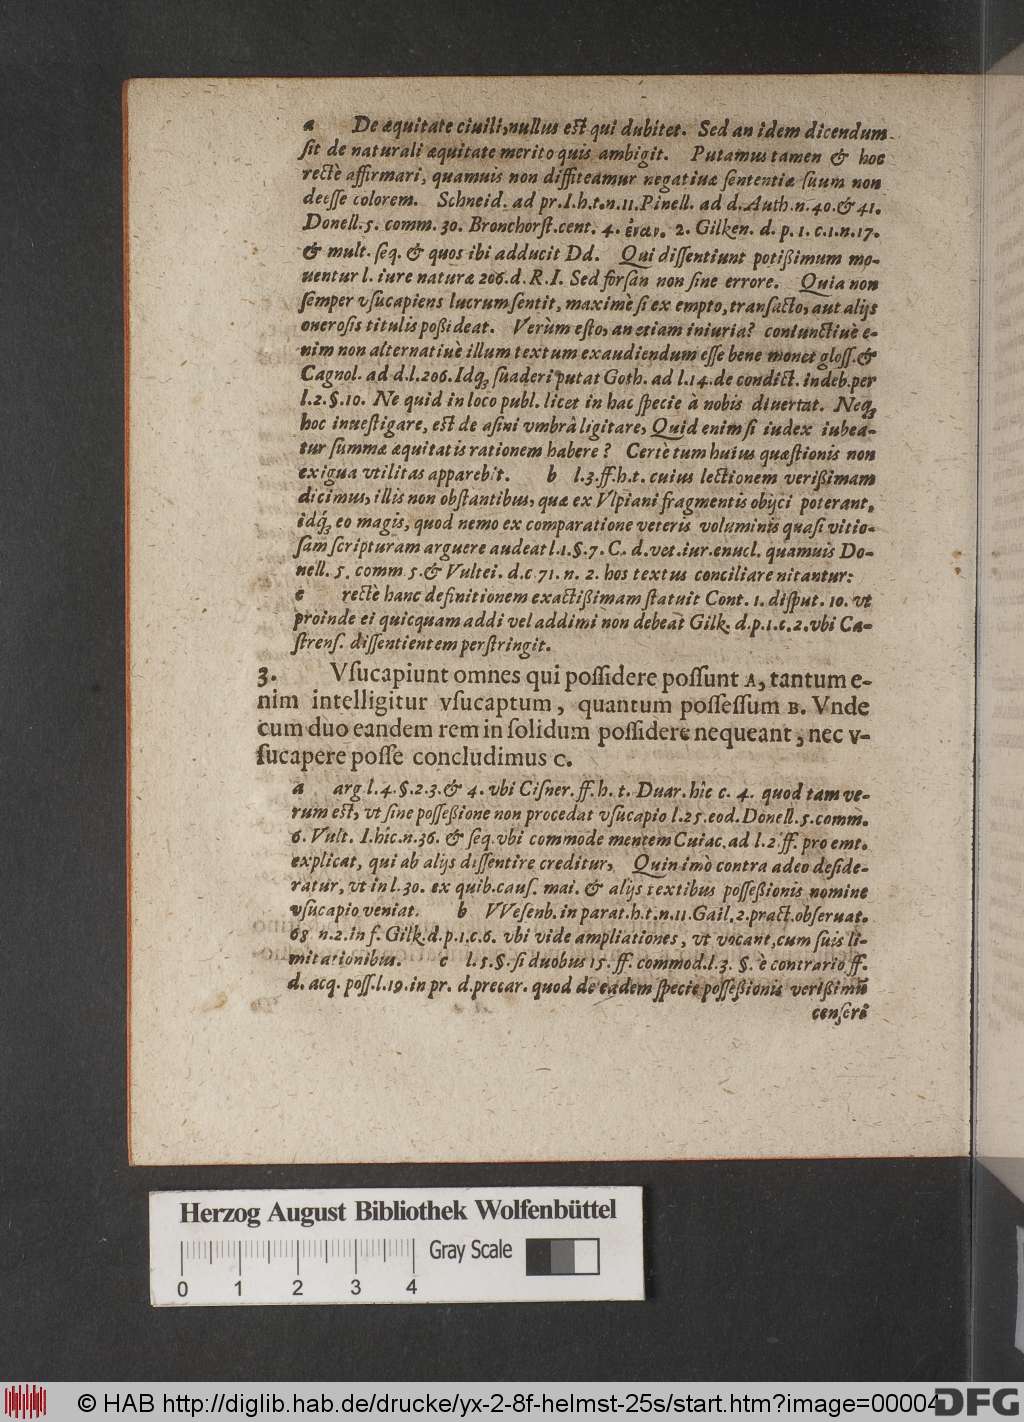 a De æquitate ciuili, nullus est qui dubitet. Sed an idem dicendum
ſit de naturali æquitate merito quis ambigit. Putamus tamen & hoc
rectè affirmari, quamuis non diffiteamur negatiuæ ſententiæ ſuum non
deeſſe colorem. Schneid. ad pr. I. h. t. n. 11. Pinell. ad d. Auth. n. 40. & 41.
Donell. 5. comm. 30. Bronchorſt. cent. 4. 2. Gilken. d. p. 1. c. 1. n. 17.
& mult. ſeq. & quos ibi adducit Dd. Qui diſſentiunt potißimum mo-
uentur l. iure naturæ 206. d. R. I. Sed forſan non ſine errore. Quia non
ſemper vſucapiens lucrum ſentit, maximè ſi ex empto, tranſacto, aut alijs
oneroſis titulis poßideat. Verùm eſto, an etiam iniuria? coniunctiuè e-
nim non alternatiuè illum textum exaudiendum eſſe bene monet gloſſ. &
Cagnol. ad d. l. 206. Idq; ſuaderi putat Goth. ad l. 14. de condict. indeb. per
l. 2. §. 10. Ne quid in loco publ. licet in hac ſpecie à nobis diuertat. Neq;
hoc inueſtigare, eſt de aſini vmbrâ ligitare, Quid enim ſi iudex iubea-
tur ſummæ æquitatis rationem habere? Certè tum huius quæſtionis non
exigua vtilitas apparebit. b l. 3. ff. h. t. cuius lectionem verißimam
dicimus, illis non obſtantibus, quæ ex Vlpiani fragmentis obijci poterant,
idq́; eo magis, quod nemo ex comparatione veteris voluminis quaſi vitio-
ſam ſcripturam arguere audeat l. 1. §. 7. C. d. vet. iur. enucl. quamuis Do-
nell. 5. comm. 5. & Vultei. d. c. 71. n. 2. hos textus conciliare nitantur:
c rectè hanc definitionem exactißimam ſtatuit Cont. 1. diſput. 10. vt
proinde ei quicquam addi vel addimi non debeat Gilk. d. p. 1. c. 2. vbi Ca-
ſtrenſ. diſſentientem perſtringit.
3. Vſucapiunt omnes qui poſſidere poſſunt A, tantum e-
nim intelligitur vſucaptum, quantum poſſeſſum B. Vnde
cum duo eandem rem in ſolidum poſſidere nequeant, nec v-
ſucapere poſſe concludimus C.
a arg. l. 4. §. 2. 3. & 4. vbi Ciſner. ff. h. t. Duar. hîc c. 4. quod tam ve-
rum eſt, vt ſine poſſeßione non procedat vſucapio l. 25. eod. Donell. 5. comm.
6. Vult. I. hîc. n. 36. & ſeq. vbi commode mentem Cuiac. ad l. 2. ff. pro emt.
explicat, qui ab alijs diſſentire creditur, Quin imò contra adeo deſide-
ratur, vt in l. 30. ex quib. cauſ. mai. & alijs textibus poſſeßionis nomine
vſucapio veniat. b VVeſenb. in parat. h. t. n. 11. Gail. 2. pract. obſeruat.
68 n. 2. in f. Gilk. d. p. 1. c. 6. vbi vide ampliationes, vt vocant, cum ſuis li-
mitationibus. c l. 5. §. ſi duobus 15. ff. commod. l. 3. §. è contrario ff.
d. acq. poſſ. l. 19. in pr. d. precar. quod de eadem ſpecie poſſeßionis verißimũ
cenſere
Herzog August Bibliothek Wolfenbüttel
Gray Scale
0 1 2 3 4
© HAB http://diglib.hab.de/drucke/yx-2-8f-helmst-25s/start.htm?image=00004
DFG